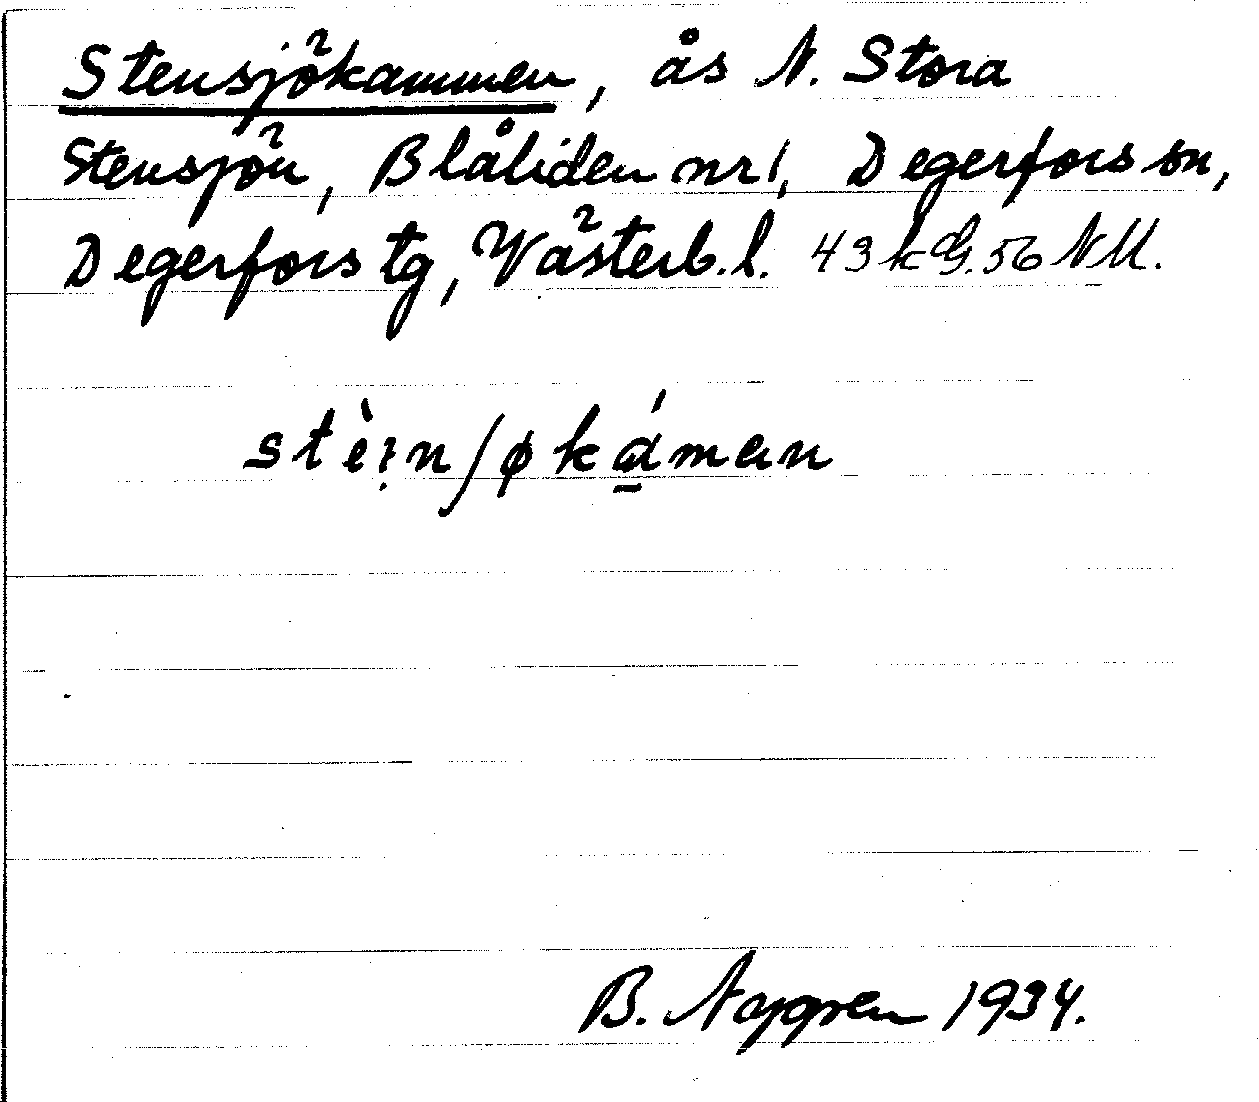 Stensjökammen, ås N. Stora
Stensjön, Blåliden nr 1, Degerfors sn,
Degerfors tg, Västerb. l. 43 k G. 56 NM.
stèɩn/økáman
B. Nygren 1934.